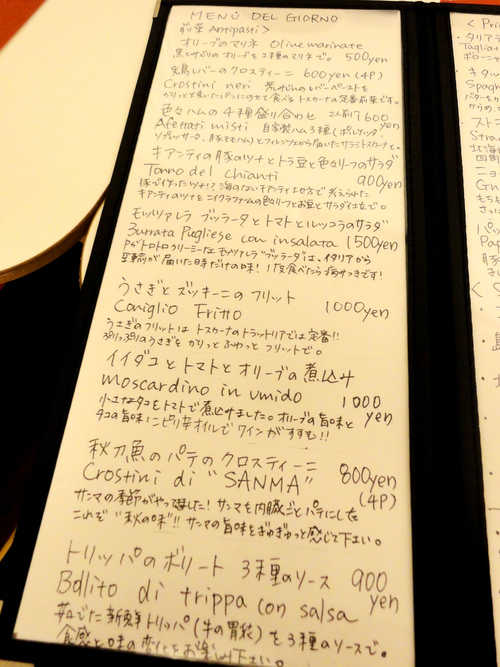 MENÙ DEL GIORNO
前菜 Antipasti >
オリーブのマリネ Olive marinate
黒とみどりのオリーブを2種のマリネで。 500yen
鶏レバーのクロスティーニ 600yen (4P)
Crostini neri 荒びきのレバーペーストを
カリッと焼いたパンにのせて食べるトスカーナの定番前菜です。
色々ハムの4種盛り合わせ 2人前 1600 yen
Affettati misti 自家製ハム3種(ポルケッタ、
ソプレッサータ、豚ももハム)とフィレンツェから届いたサラミトスカーナと。
キアンティの豚のツナとトラ豆と色々リーフのサラダ
Tonno del Chianti 900yen
豚で作ったツナ!?海のないキアンティ地方で考えられた
キアンティのツナをニイクラファームの色々リーフとお豆とサラダ仕立で。
モッツァレラ ブッラータとトマトとルッコラのサラダ
Burrata Pugliese con insalata 1500yen
中がトロトロクリーミーなモッツァレラ"ブッラータ"は、イタリアから
空輸が届いた時だけの味!1度食べたら病みつきです!
うさぎとズッキーニのフリット
Coniglio Fritto 1000yen
うさぎのフリットはトスカーナのトラットリアでは定番!!
ぷりっぷりのうさぎをかりっとふわっとフリットで。
イイダコとトマトとオリーブの煮込み
moscardino in umido 1000 yen
小さなタコをトマトで煮込みました。オリーブの旨味と
タコの旨味にピリ辛オイルでワインがすすむ!!
秋刀魚のパテのクロスティーニ 800yen
Crostini di "SANMA" (4P)
サンマの季節がやって来ました!サンマを内臓ごとパテにした
これぞ"秋の味"!!サンマの旨味をぎゅぎゅっと感じて下さい。
トリッパのボリート 3種のソース 900 yen
Bollito di trippa con salsa
茹でた新鮮トリッパ(牛の胃袋)を3種のソースで。
食感と味の変化をお楽しみ下さい。